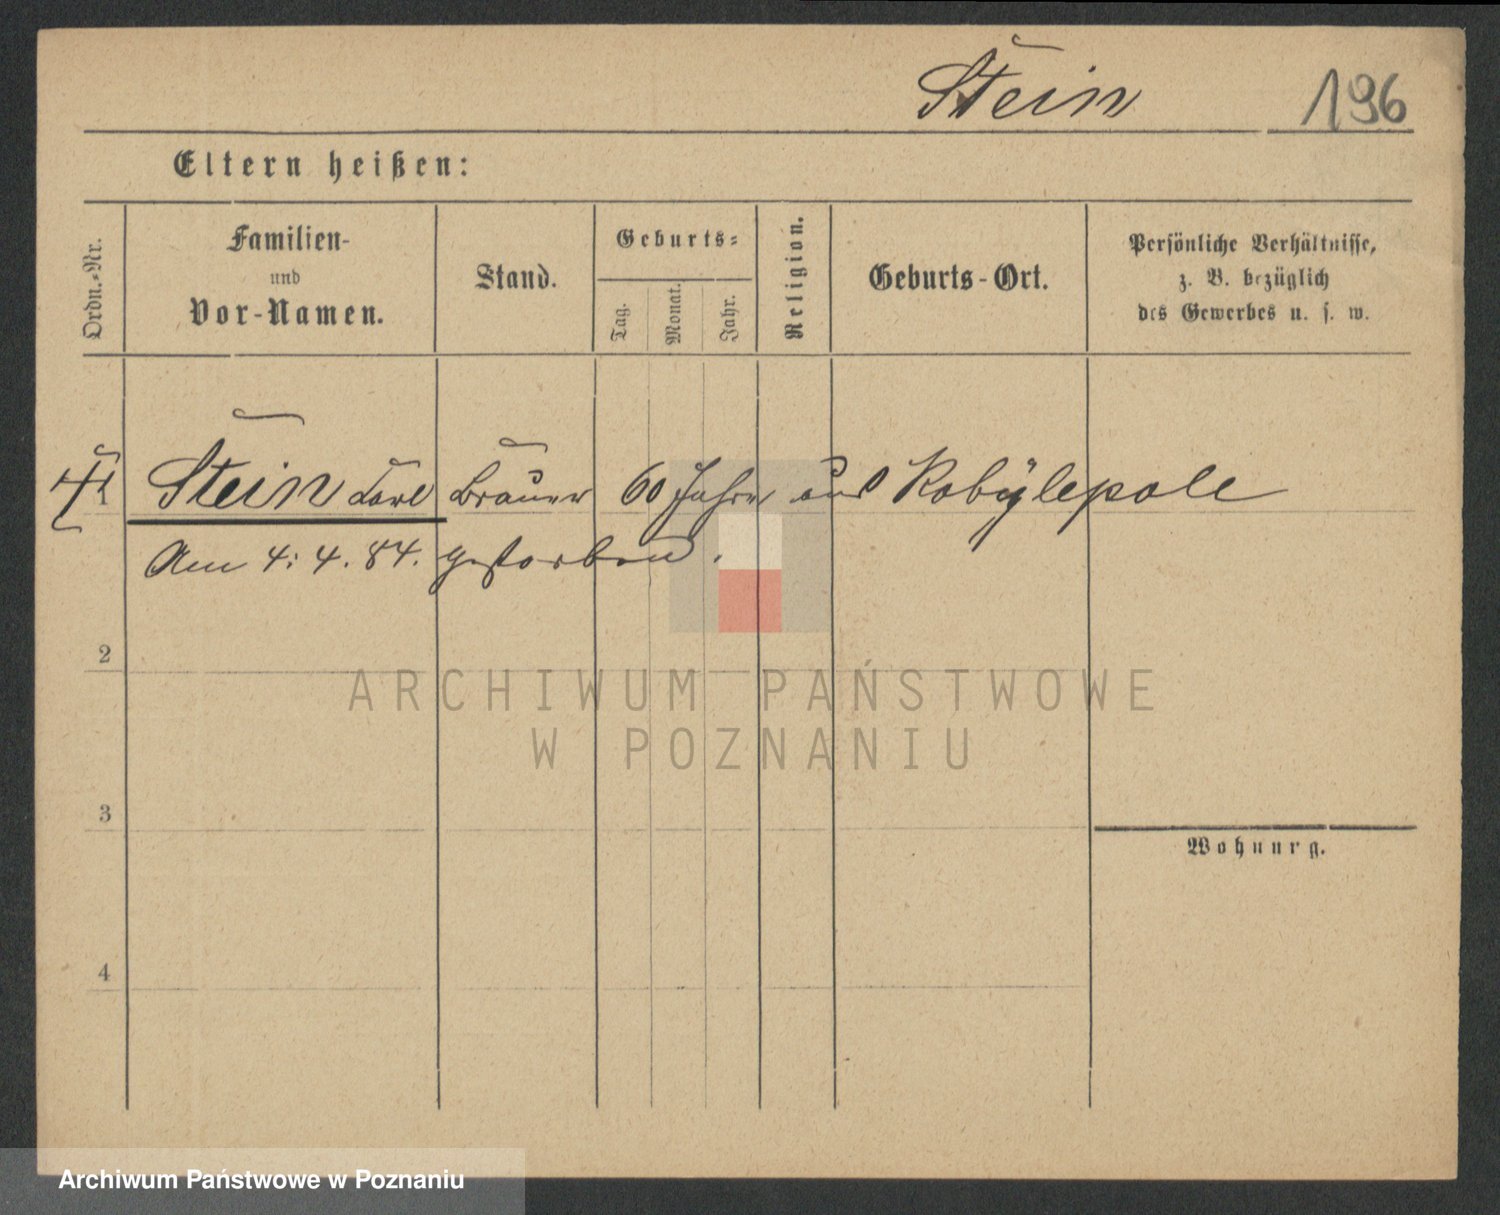 Stein 196
Eltern heißen:
Ordn.-Nr.
Familien-
und
Vor-Namen.
Stand.
Geburts-
Tag.
Monat.
Jahr.
Religion.
Geburts-Ort.
Persönliche Verhältnisse,
z. B. bezüglich
des Gewerbes u. s. w.
1 Stein Carl Brauer 60 Jahre aus Kobylepole
Am 4. 4. 84. gestorben.
2
3
4
Wohnung.
ARCHIWUM PAŃSTWOWE
W POZNANIU
Archiwum Państwowe w Poznaniu